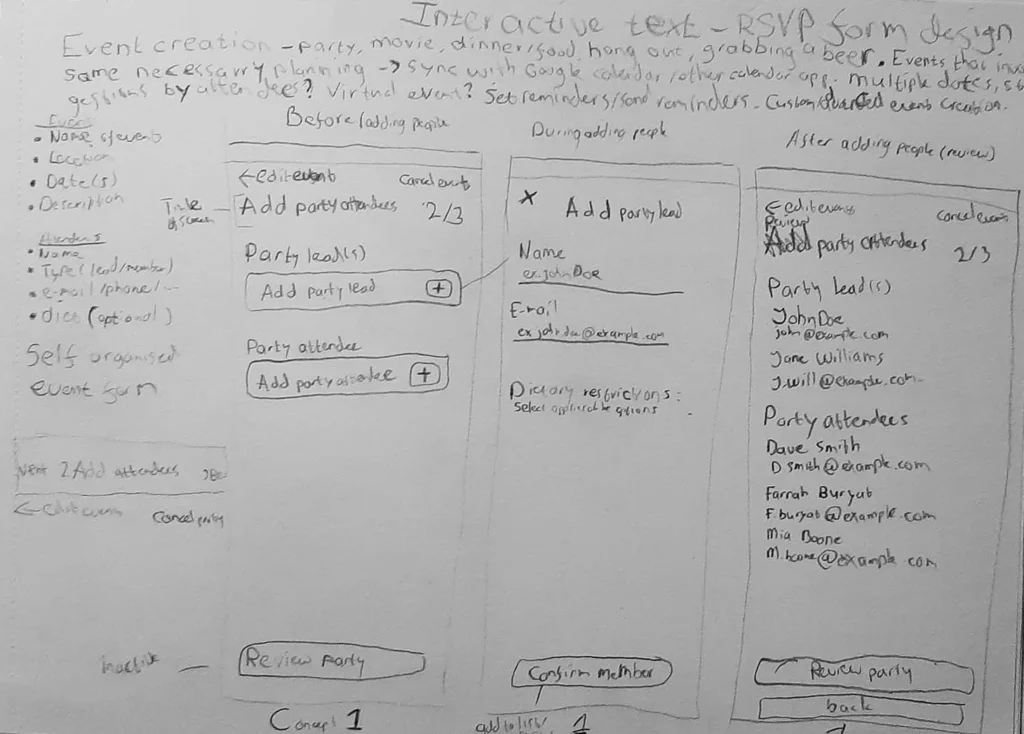 Interactive text - RSVP form design
Event creation - party, movie, dinner/food, hang out, grabbing a beer. Events that
some necessarry planning → sync with Google calendar/other calendar app. multiple dates,
by attendees? Virtual event? Set reminders/send reminders. event creation.
Event
• Name of event
• Location
• Date(s)
• Description
Attendees
• Name
• Type (lead/member)
• e-mail/phone/...
• (optional)
Self organised
event form
2 Add attendees
← edit event
Cancel party
Before (adding people
Title
of screen
← edit event
Cancel event
Add party attendees 2/3
Party lead(s)
Add party lead +
Party attendee
Add party attendee +
Inactive
Review party
Concept 1
During adding people
x Add party lead
Name
ex. John Doe
E-mail
ex john.doe@example.com
Dietary restrictions:
Select options
Confirm member
add to list/
1
After adding people (review)
← edit event
Cancel event
Review
Add party attendees 2/3
Party lead(s)
John Doe
john@example.com
Jane Williams
J.will@example.com
Party attendees
Dave Smith
D smith@example.com
Farrah Buryat
F.buryat@example.com
Mia Boone
M.boone@example.com
Review party
back